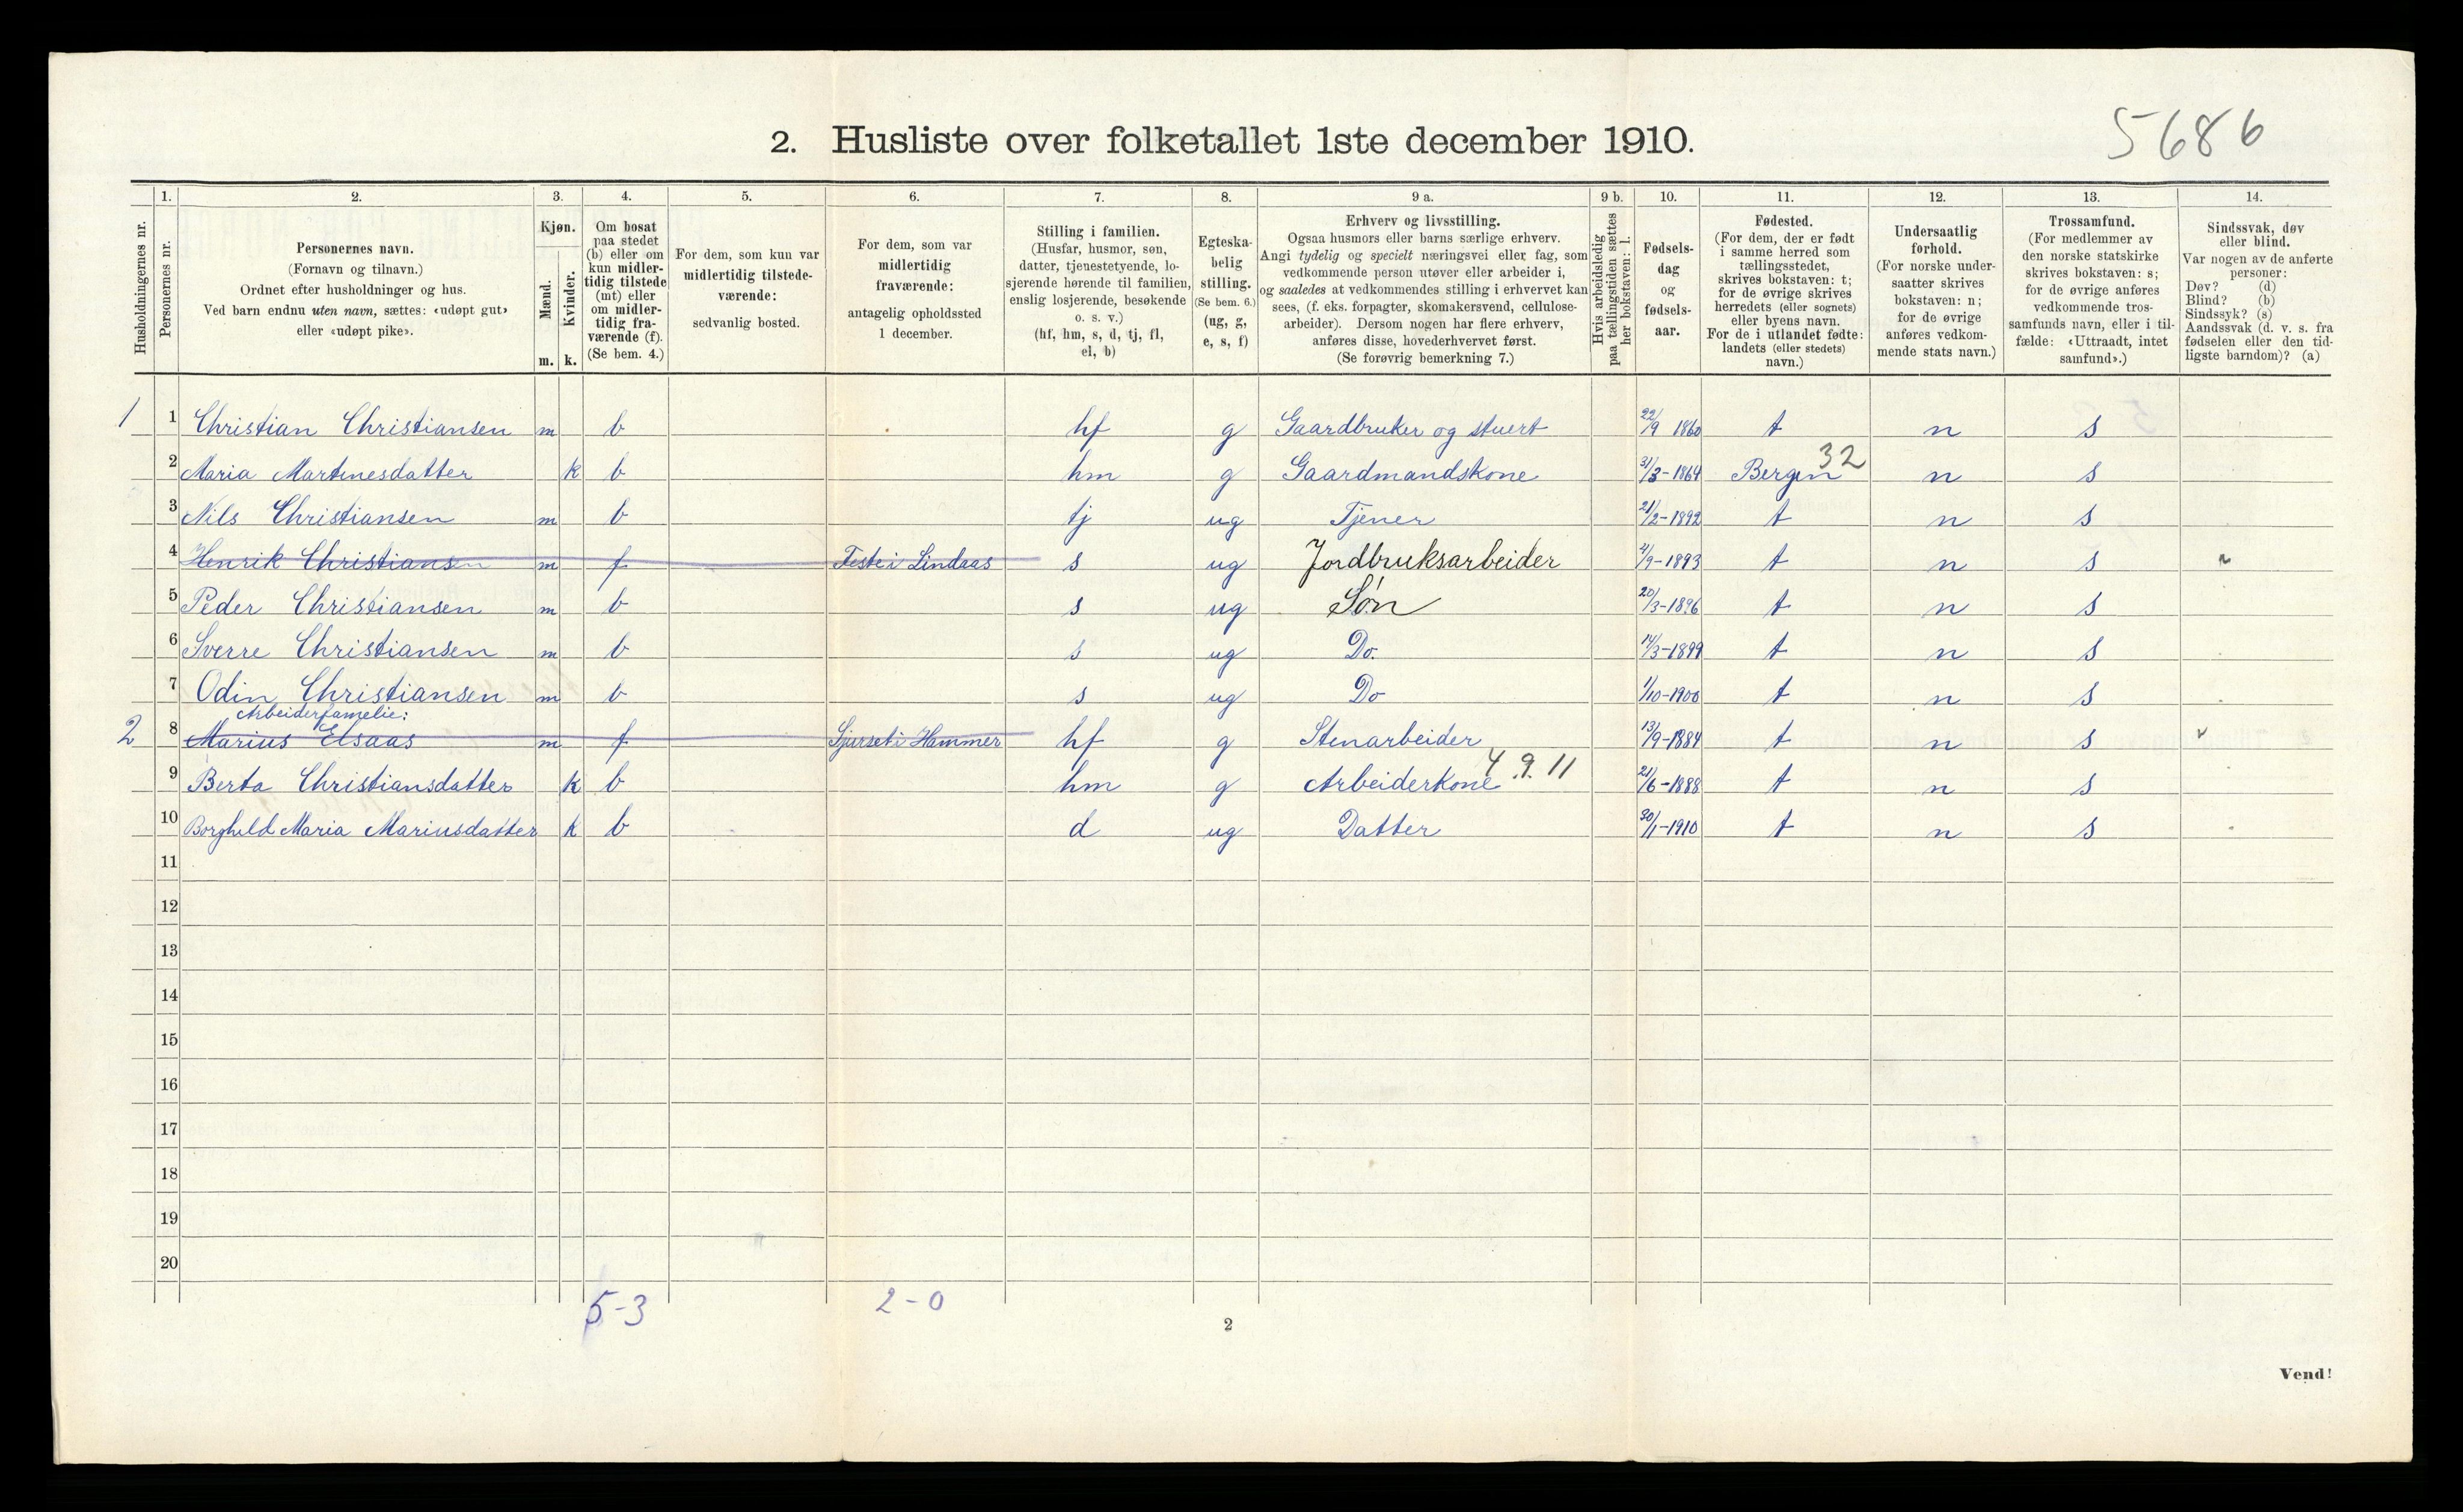 5686
2. Husliste over folketallet 1ste december 1910.
1. 2. 3. 4. 5. 6. 7. 8. 9 a. 9 b. 10. 11. 12. 13. 14.
Husholdningernes nr.
Personernes nr.
Personernes navn.
(Fornavn og tilnavn.)
Ordnet efter husholdninger og hus.
Ved barn endnu uten navn, sættes: «udøpt gut»
eller «udøpt pike».
Kjøn.
Mænd.
Kvinder.
m. k.
Om bosat
paa stedet
(b) eller om
kun midler-
tidig tilstede
(mt) eller
om midler-
tidig fra-
værende (f).
(Se bem. 4.)
For dem, som kun var
midlertidig tilstede-
værende:
sedvanlig bosted.
For dem, som var
midlertidig
fraværende:
antagelig opholdssted
1 december.
Stilling i familien.
(Husfar, husmor, søn,
datter, tjenestetyende, lo-
sjerende hørende til familien,
enslig losjerende, besøkende
o. s. v.)
(hf, hm, s, d, tj, fl,
el, b)
Egteska-
belig
stilling.
(Se bem. 6.)
(ug, g,
e, s, f)
Erhverv og livsstilling.
Ogsaa husmors eller barns særlige erhverv.
Angi tydelig og specielt næringsvei eller fag, som
vedkommende person utøver eller arbeider i,
og saaledes at vedkommendes stilling i erhvervet kan
sees, (f. eks. forpagter, skomakersvend, cellulose-
arbeider). Dersom nogen har flere erhverv,
anføres disse, hovederhvervet først.
(Se forøvrig bemerkning 7.)
Hvis arbeidsledig
paa tællingstiden sættes
her bokstaven: l.
Fødsels-
dag
og
fødsels-
aar.
Fødested.
(For dem, der er født
i samme herred som
tællingsstedet,
skrives bokstaven: t;
for de øvrige skrives
herredets (eller sognets)
eller byens navn.
For de i utlandet fødte:
landets (eller stedets)
navn.)
Undersaatlig
forhold.
(For norske under-
saatter skrives
bokstaven: n;
for de øvrige
anføres vedkom-
mende stats navn.)
Trossamfund.
(For medlemmer av
den norske statskirke
skrives bokstaven: s;
for de øvrige anføres
vedkommende tros-
samfunds navn, eller i til-
fælde: «Uttraadt, intet
samfund».)
Sindssvak, døv
eller blind.
Var nogen av de anførte
personer:
Døv? (d)
Blind? (b)
Sindssyk? (s)
Aandssvak (d. v. s. fra
fødselen eller den tid-
ligste barndom)? (a)
1 1 Christian Christiansen m b hf g Gaardbruker og stuert 22/9 1860 t n s
2 Maria Martinesdatter k b hm g Gaardmandskone 31/3-1864 Bergen 32 n s
3 Nils Christiansen m b tj ug Tjener 21/2-1892 t n s
4 Henrik Christiansen m f Feste i Lindaas s ug Jordbruksarbeider 4/9-1893 t n s
5 Peder Christiansen m b s ug Søn 20/3-1896 t n s
6 Sverre Christiansen m b s ug Do. 14/3-1899 t n s
7 Odin Christiansen m b s ug Do 1/10-1900 t n s
Arbeiderfamelie:
2 8 Marius Elsaas m f Sjurset i Hammer hf g Stenarbeider 13/9-1884 t n s
4.9.11
9 Berta Christiansdatter k b hm g Arbeiderkone 21/6-1888 t n s
10 Borghild Maria Mariusdatter k b d ug Datter 30/1-1910 t n s
11
12
13
14
15
16
17
18
19
20
5-3 2-0
2
Vend!